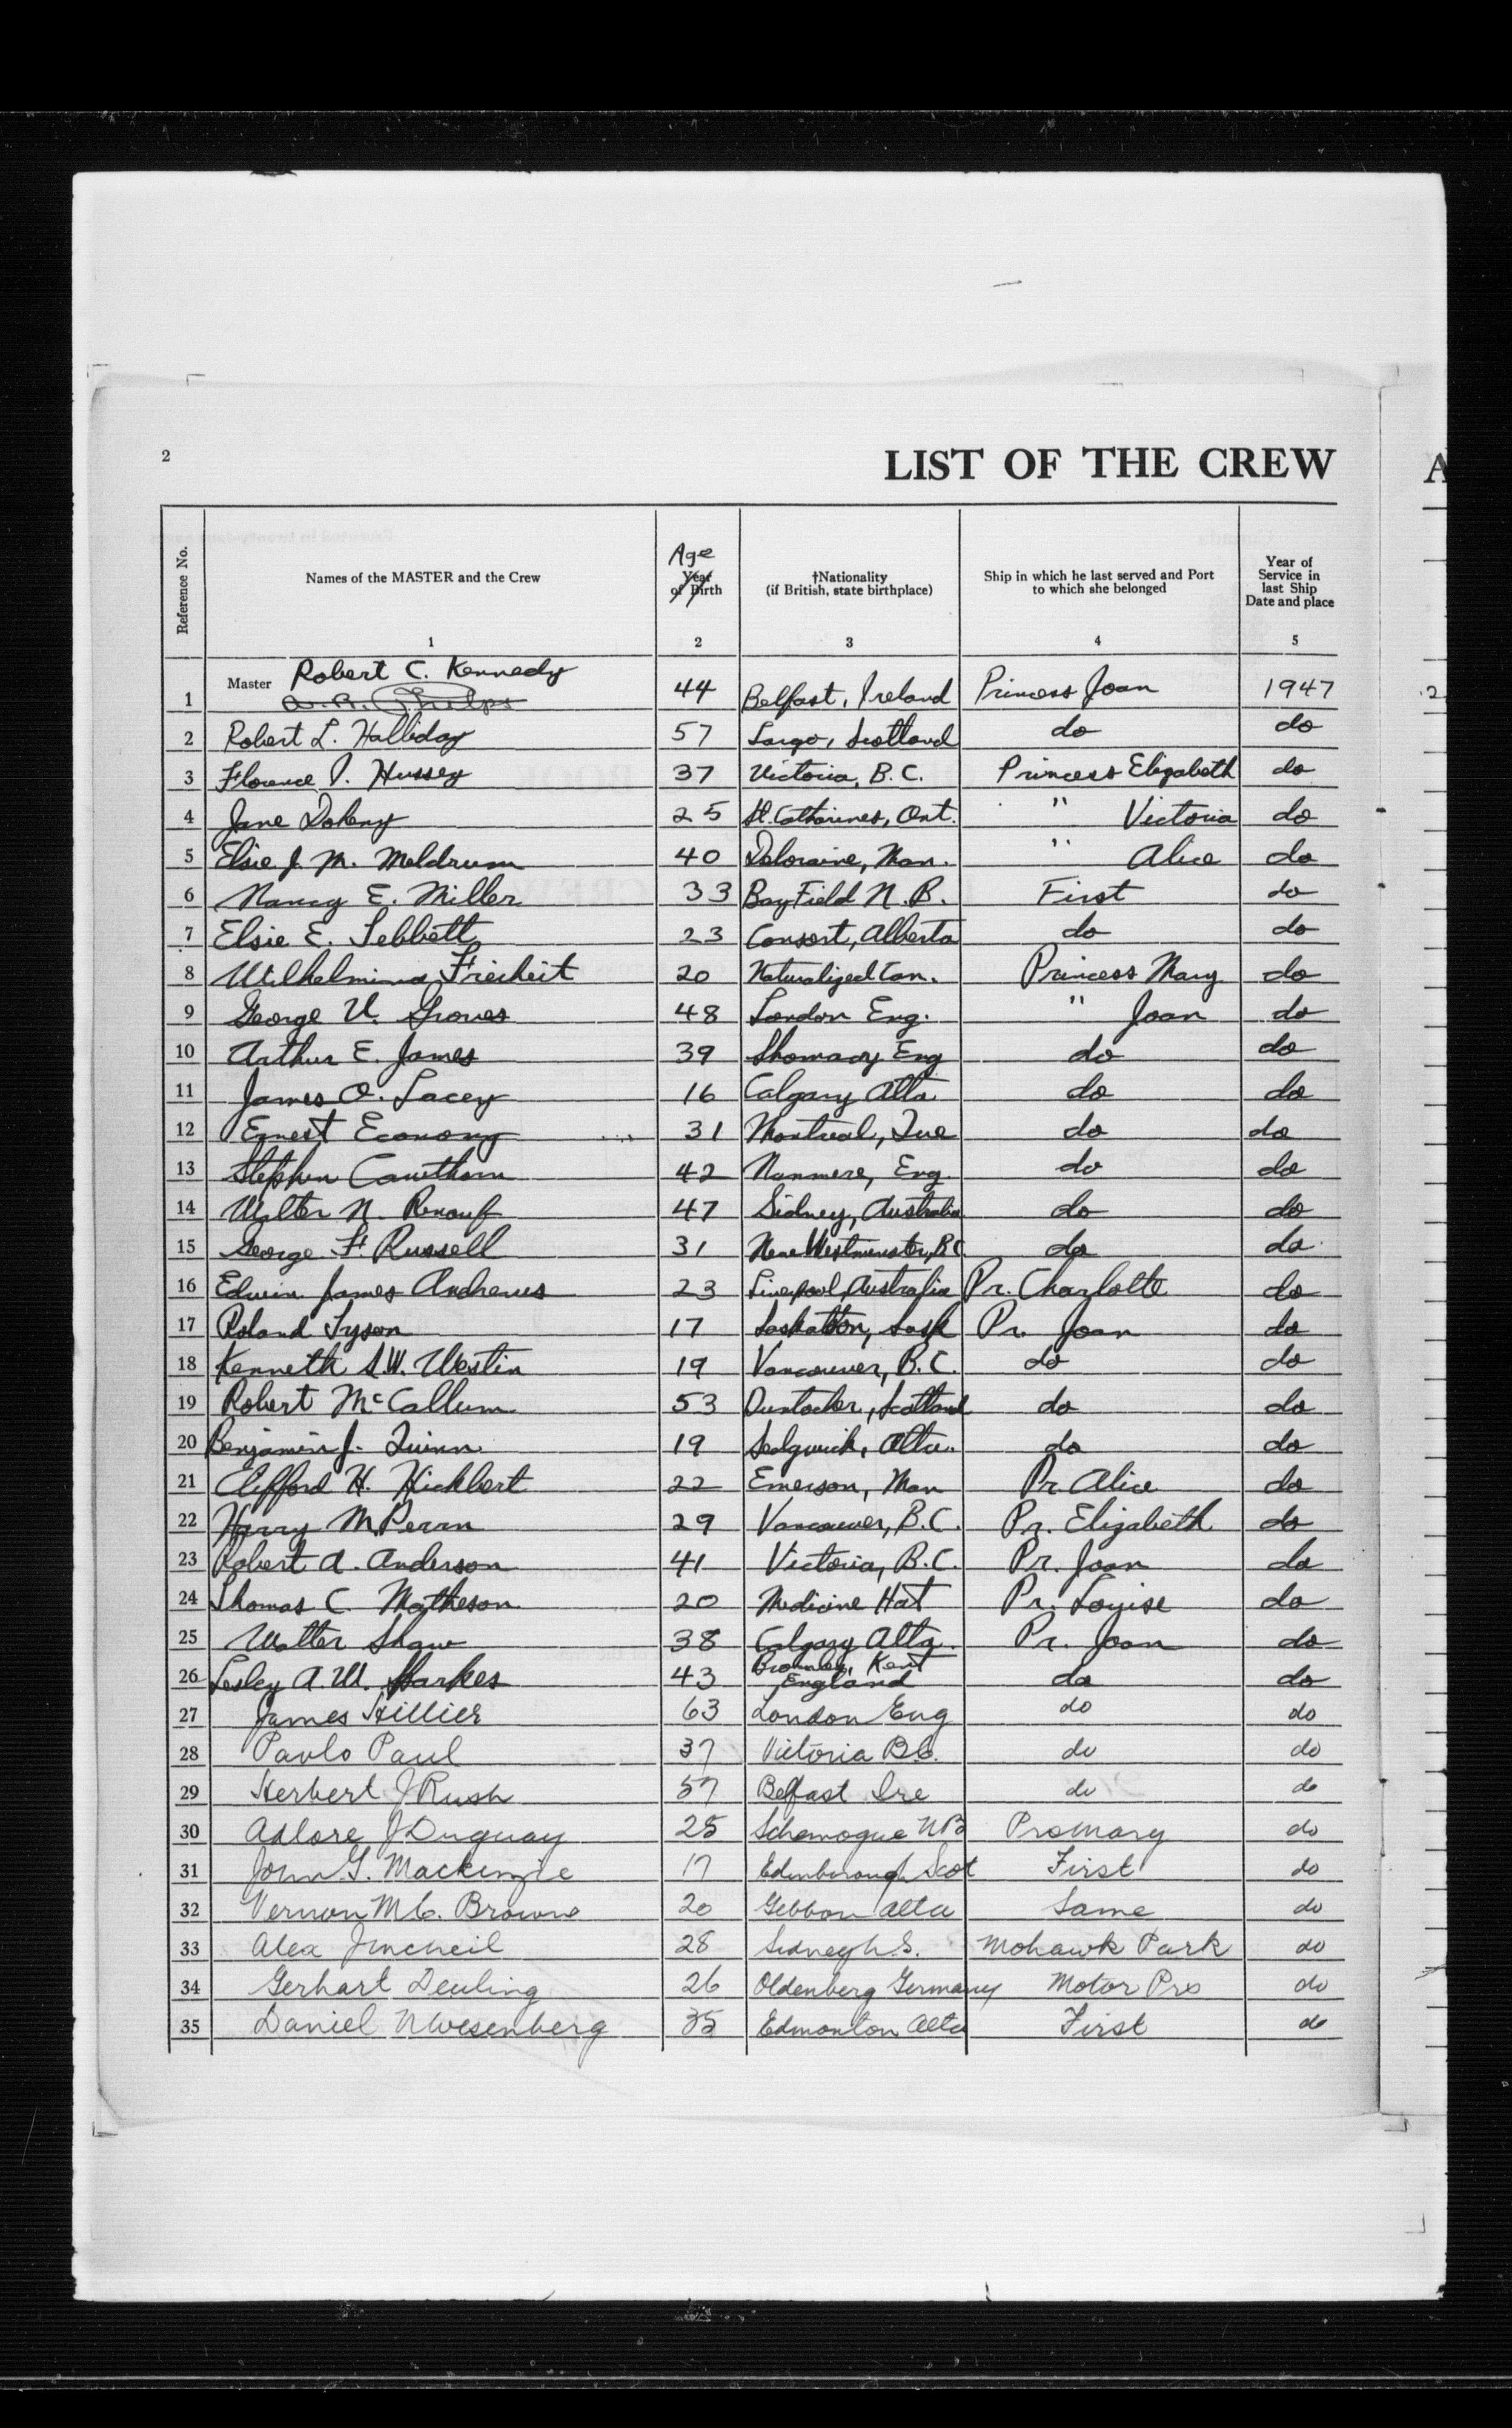 2
LIST OF THE CREW
Reference No.
Names of the MASTER and the Crew
Age
Year of Birth
†Nationality
(if British, state birthplace)
Ship in which he last served and Port
to which she belonged
Year of
Service in
last Ship
Date and place
1 2 3 4 5
Robert C. Kennedy
1 Master 44 Belfast, Ireland Princess Joan 1947
2 Robert L. Halliday 57 Largo, Scotland do do
3 Florence P. Hussey 37 Victoria, B.C. Princess Elizabeth do
4 Jane Doheny 25 St. Catharines, Ont. " Victoria do
5 Elsie J. M. Meldrum 40 Deloraine, Man. " Alice do
6 Nancy E. Miller 33 BayField N.B. First do
7 Elsie E. Tebbett 23 Consort, Alberta do do
8 Wilhelmina Freiheit 20 Naturalized Can. Princess Mary do
9 George V. Groves 48 London Eng. " Joan do
10 Arthur E. James 39 Eng do do
11 James O. Lacey 16 Calgary Alta do do
12 Ernest Economy 31 Montreal, Que do do
13 Stephen Cawthorn 42 Eng. do do
14 Walter N. Renouf 47 Sidney, Australia do do
15 George F. Russell 31 New Westminster, B.C. do do
16 Edwin James Andrews 23 Liverpool, Australia Pr. Charlotte do
17 Roland Tyson 17 Saskatoon, Sask Pr. Joan do
18 Kenneth S.W. Westin 19 Vancouver, B.C. do do
19 Robert McCallum 53 Duntocher, Scotland do do
20 Benjamin J. Quinn 19 Sedgwick, Alta. do do
21 Clifford H. Hickbert 22 Emerson, Man Pr. Alice do
22 Harry M. Perrn 29 Vancouver, B.C. Pr. Elizabeth do
23 Robert A. Anderson 41 Victoria, B.C. Pr. Joan do
24 Thomas C. Matheson 20 Medicine Hat Pr. Louise do
25 Walter Shaw 38 Calgary Alta. Pr. Joan do
Bromley, Kent
26 Lesley A.W. Sparkes 43 England do do
27 James Hillier 63 London Eng do do
28 Pavlo Paul 37 Victoria B.C. do do
29 Herbert J Rush 57 Belfast Ire do do
30 Adlore J Duguay 25 Schemogue NB Pr Mary do
31 John G. Mackenzie 17 Edinborough Scot First do
32 Vernon M C. Browne 20 Gebbon Alta Same do
33 Alex J McNeil 28 Sidney N.S. Mohawk Park do
34 Gerhart Deuling 26 Oldenberg Germany Motor Prs do
35 Daniel N Wesenberg 35 Edmonton Alta First do